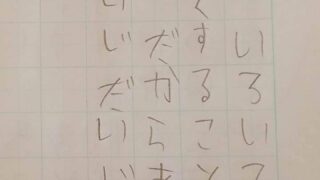 いろい
くすること
だから
じだいじ